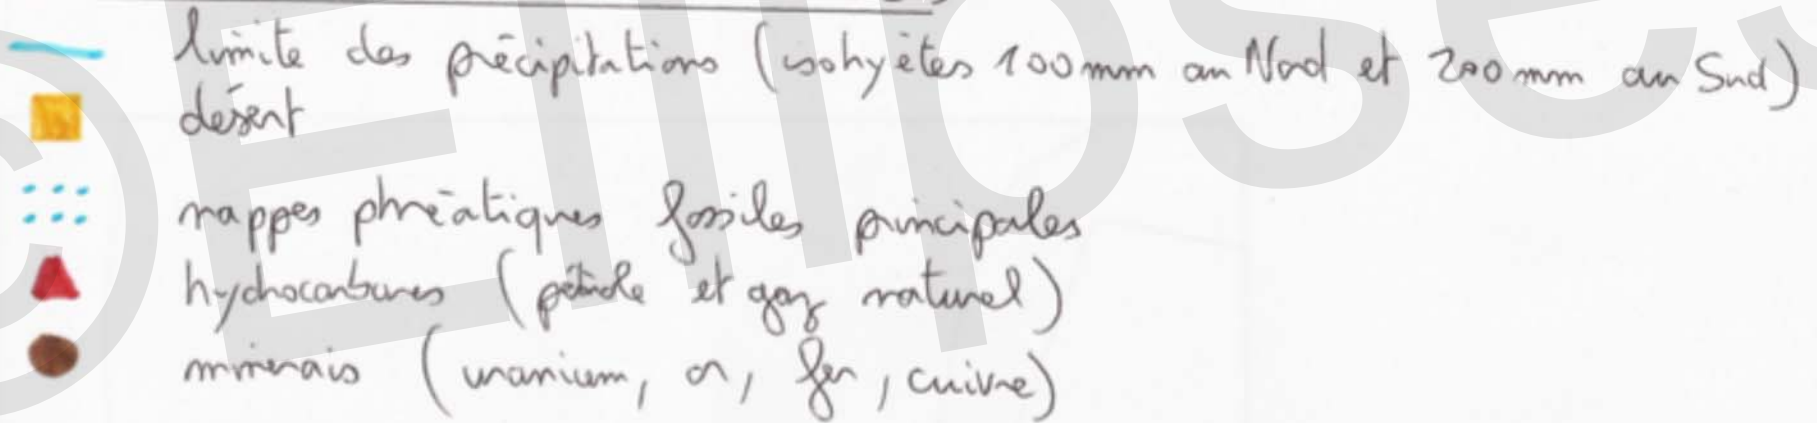 limite des précipitations (isohyètes 100 mm au Nord et 200 mm au Sud)
désert
nappes phréatiques fossiles principales
hydrocarbures (pétrole et gaz naturel)
minerais (uranium, or, fer, cuivre)
©Ellipses